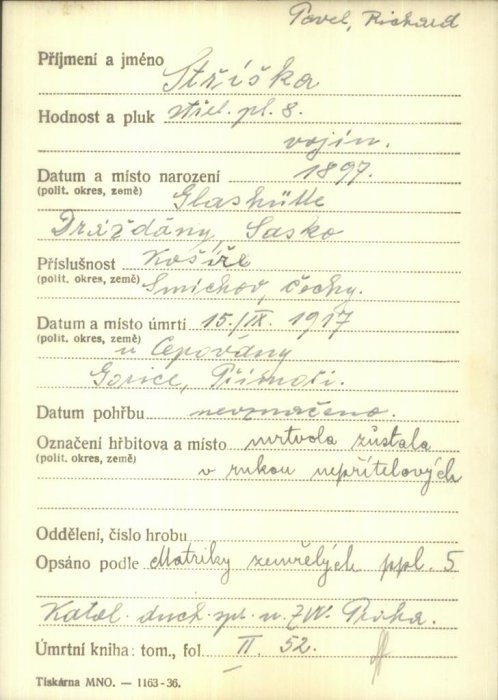 Pavel, Richard
Příjmení a jméno Stříška
Hodnost a pluk střel. pl. 8.
vojín.
Datum a místo narození 1897.
(polit. okres, země) Glashütte
Drážďány, Sasko
Příslušnost Košíře
(polit. okres, země) Smíchov, Čechy.
Datum a místo úmrtí 15./IX. 1917
(polit. okres, země) u Čepovány
Gorice, Přímoří.
Datum pohřbu neoznačeno.
Označení hřbitova a místo mrtvola zůstala
(polit. okres, země) v rukou nepřítelových
Oddělení, číslo hrobu
Opsáno podle Matriky zemřelých ppl. 5
Katol. duch. spr. u ZVV. Praha.
Úmrtní kniha: tom., fol II. 52.
Tiskárna MNO. — 1163-36.